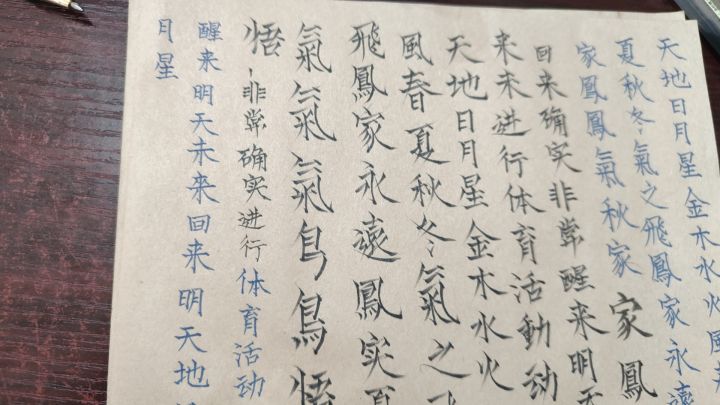 天地日月星金木水火風春
夏秋冬氣之飛鳳家永遠
家鳳鳳氣秋家家鳳
回来确实非常醒来明天
来未进行体育活動动
天地日月星金木水火
風春夏秋冬氣之飞
飛鳳家永遠鳳实夏
氣氣氣鸟鳥悟
悟非常确实进行体育活动
醒来明天未来回来明天地
月星